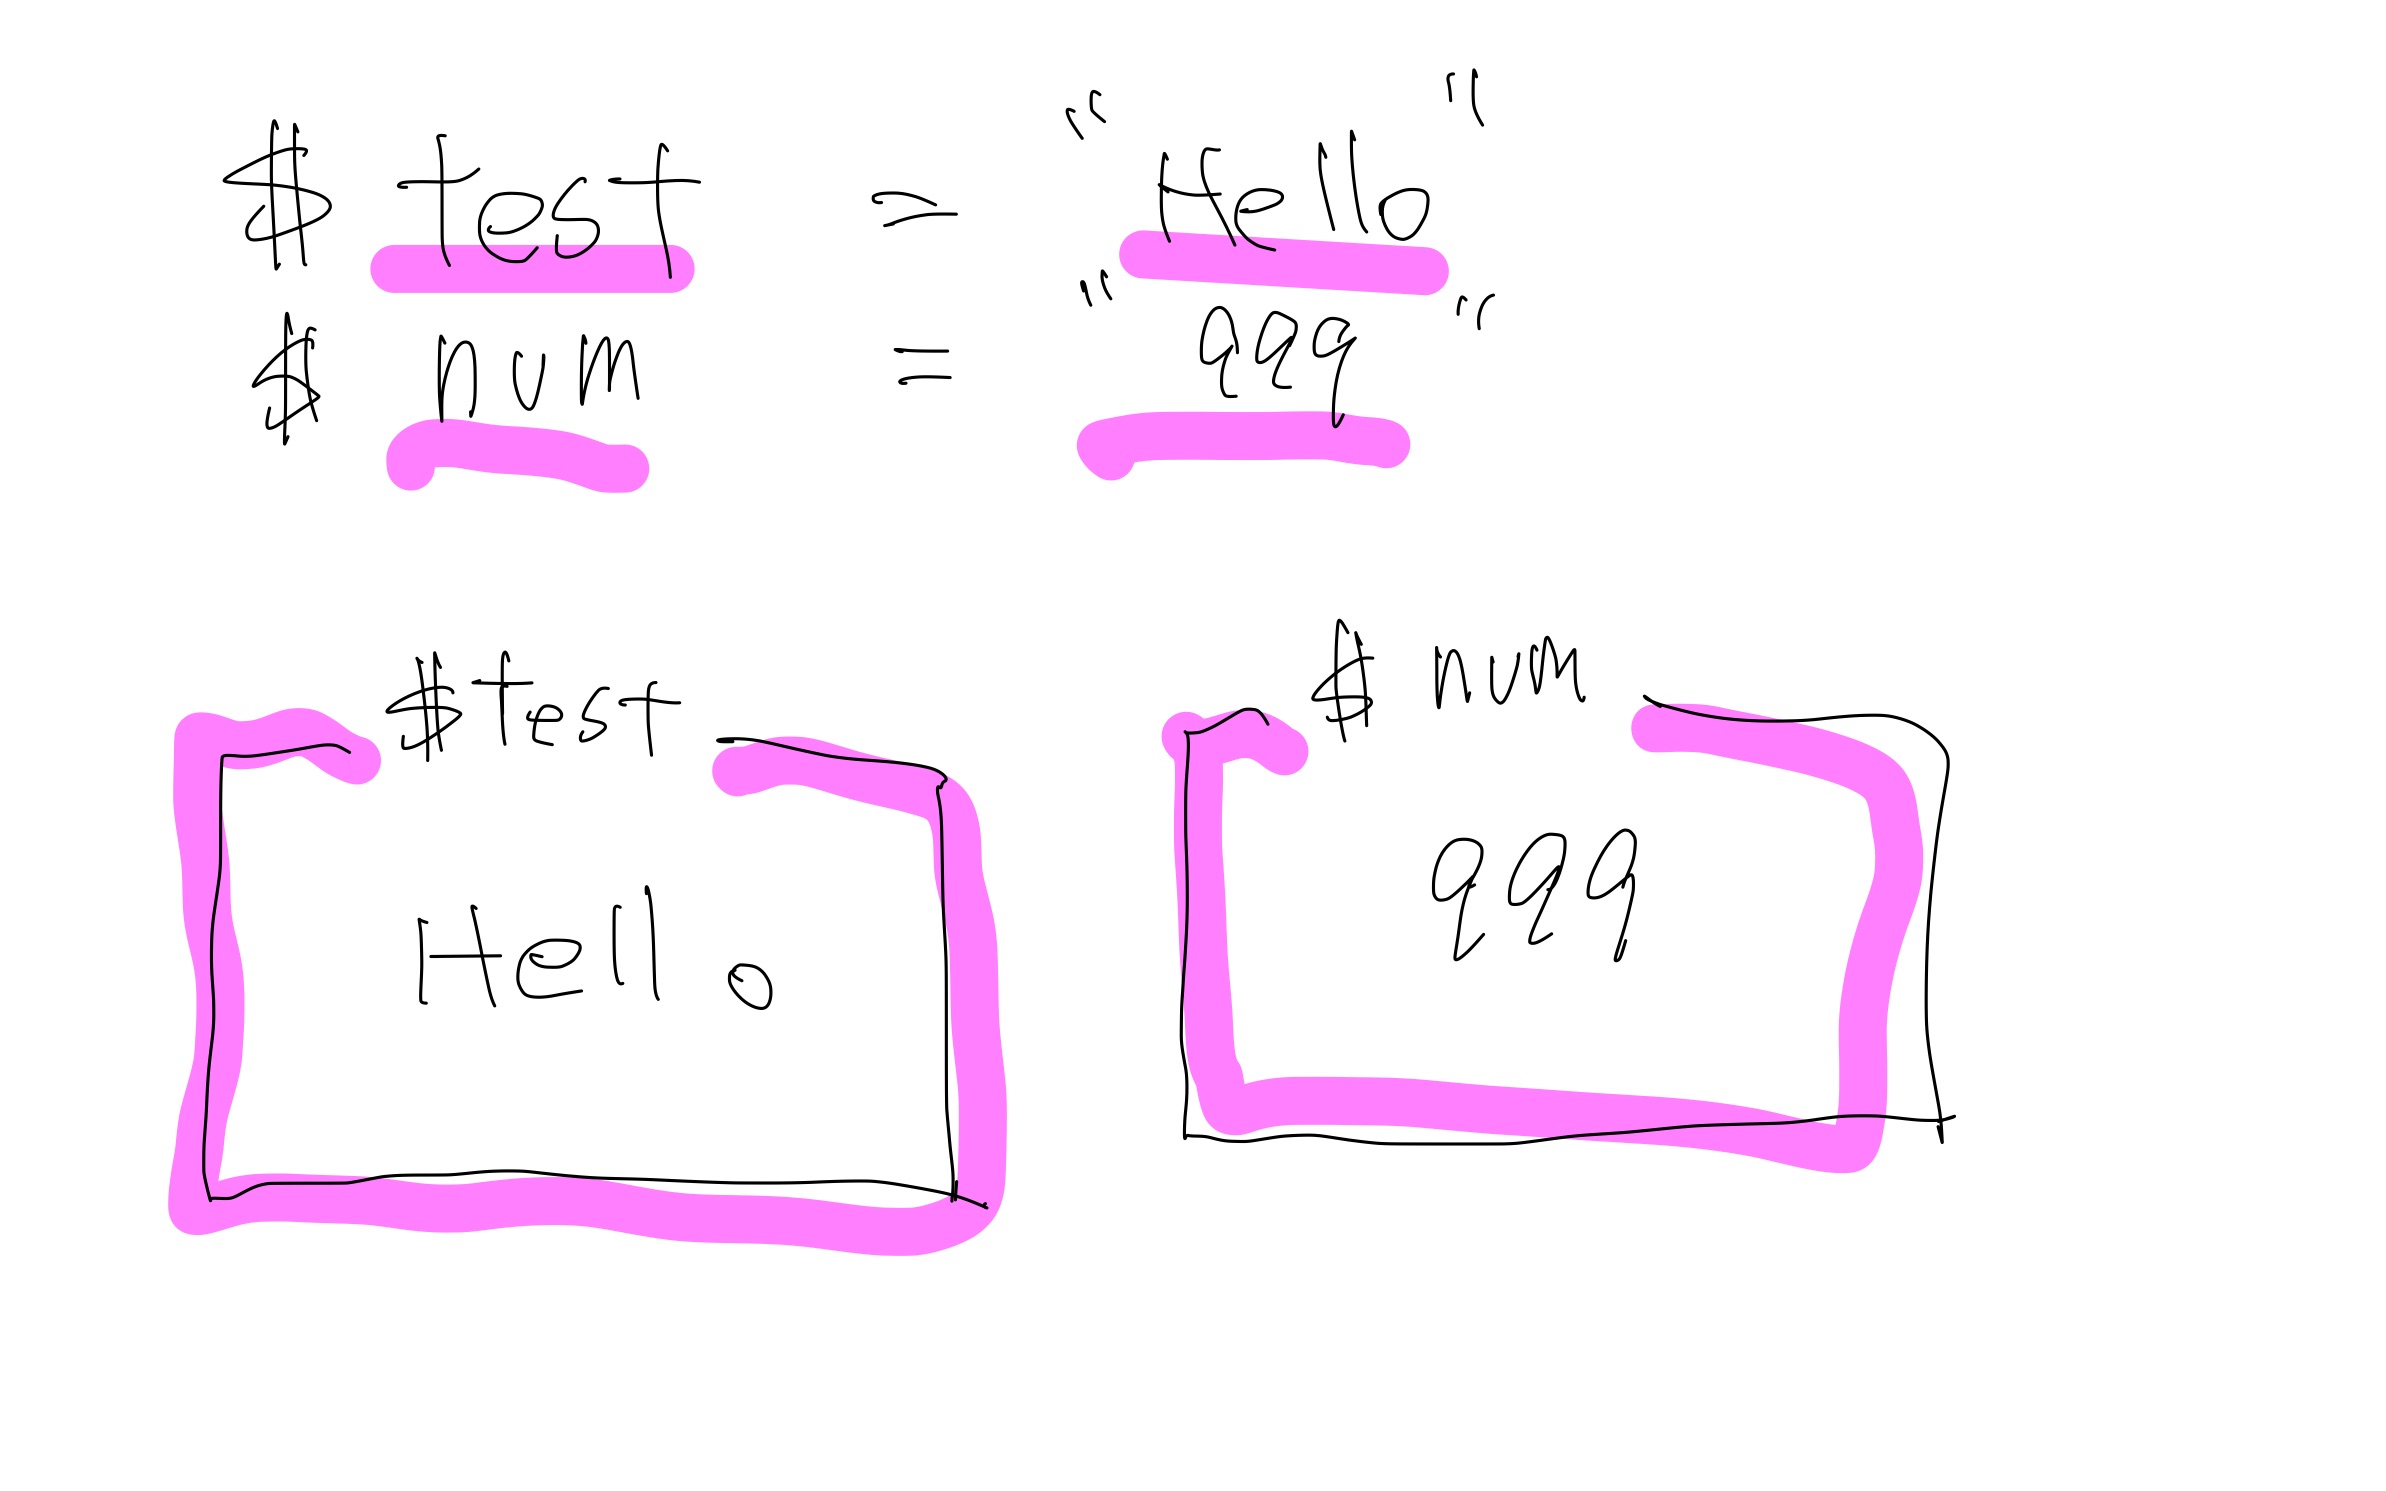 $ test = "Hello"
$ num = "999"
$test
Hello
$ num
999